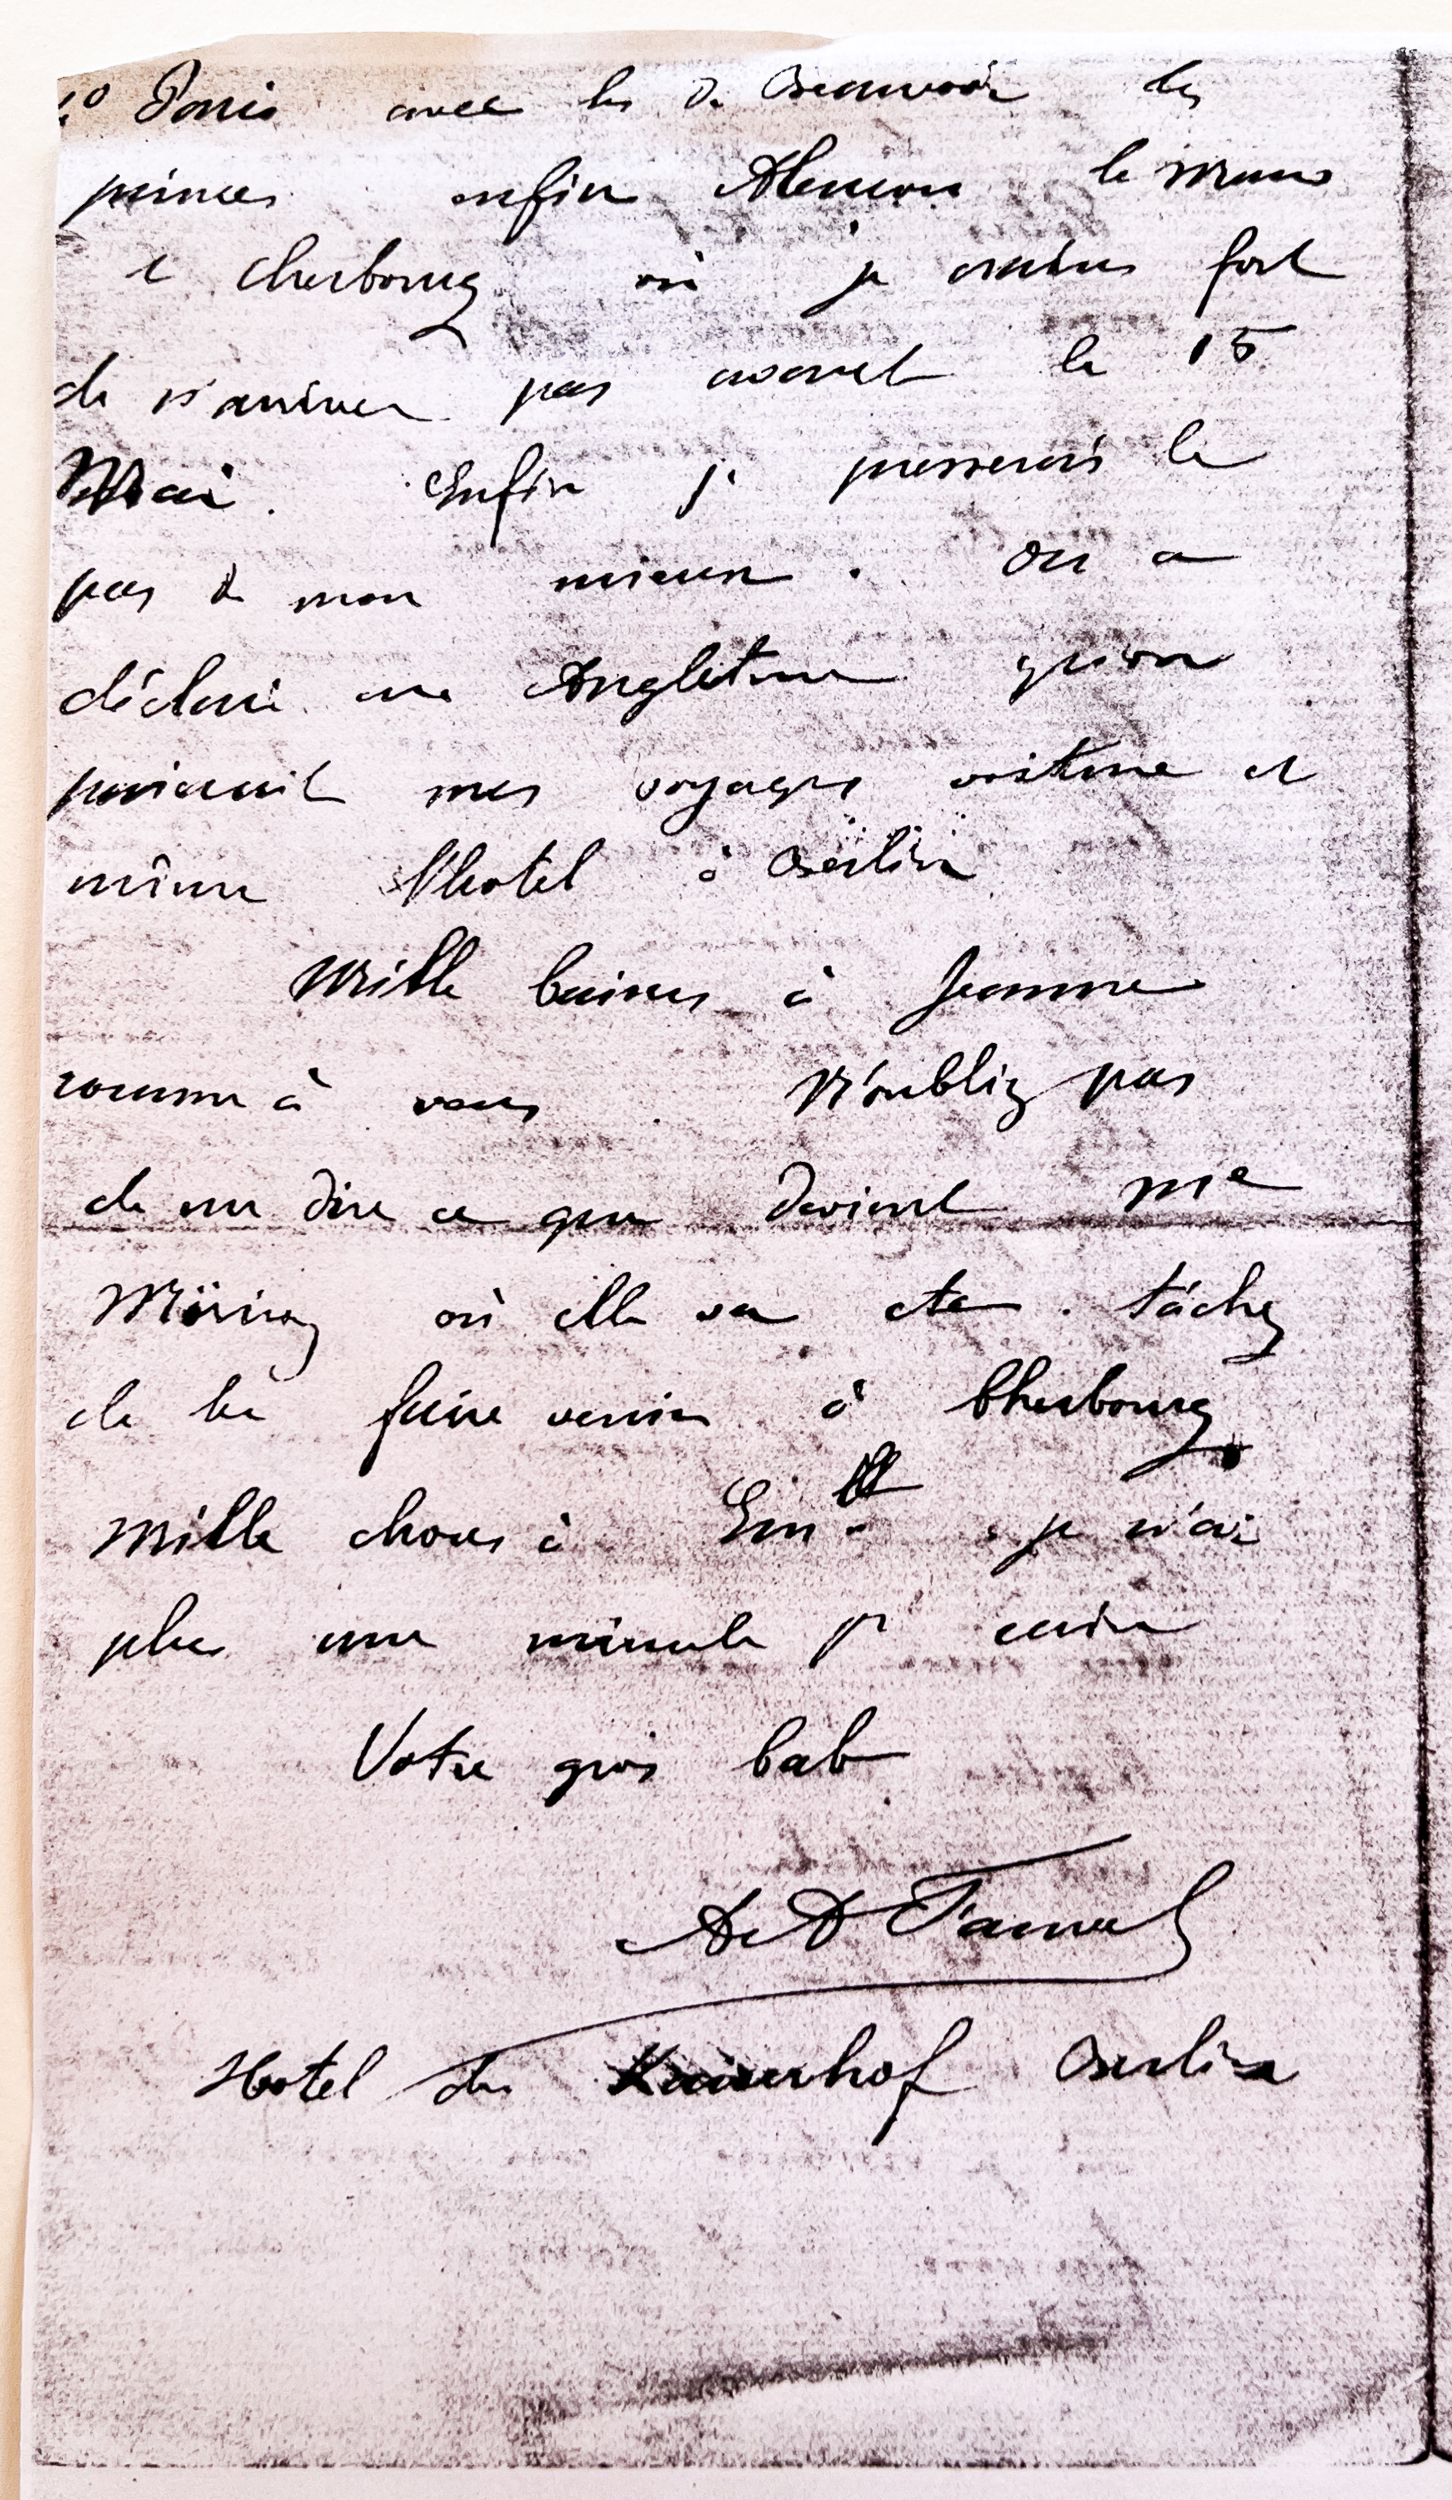 Paris avec les de Beauvoir les
princes enfin Alencon le Mans
e Cherbourg où je crains fort
de n'arriver pas avant le 15
Mai. Enfin je presserais le
pas de mon mieux. On a
déclaré en Angleterre qu'on
paierait mes voyages voiture et
même l'hotel à Berlin
Mille baisers à Jeanne
comme à vous. N'oubliez pas
de me dire ce que devient Me
où elle va etc. tâchez
de la faire venir à Cherbourg
Mille choses à je n'ai
plus une minute pr ecrire
Votre gros bab
Hotel du Kaiserhof Berlin